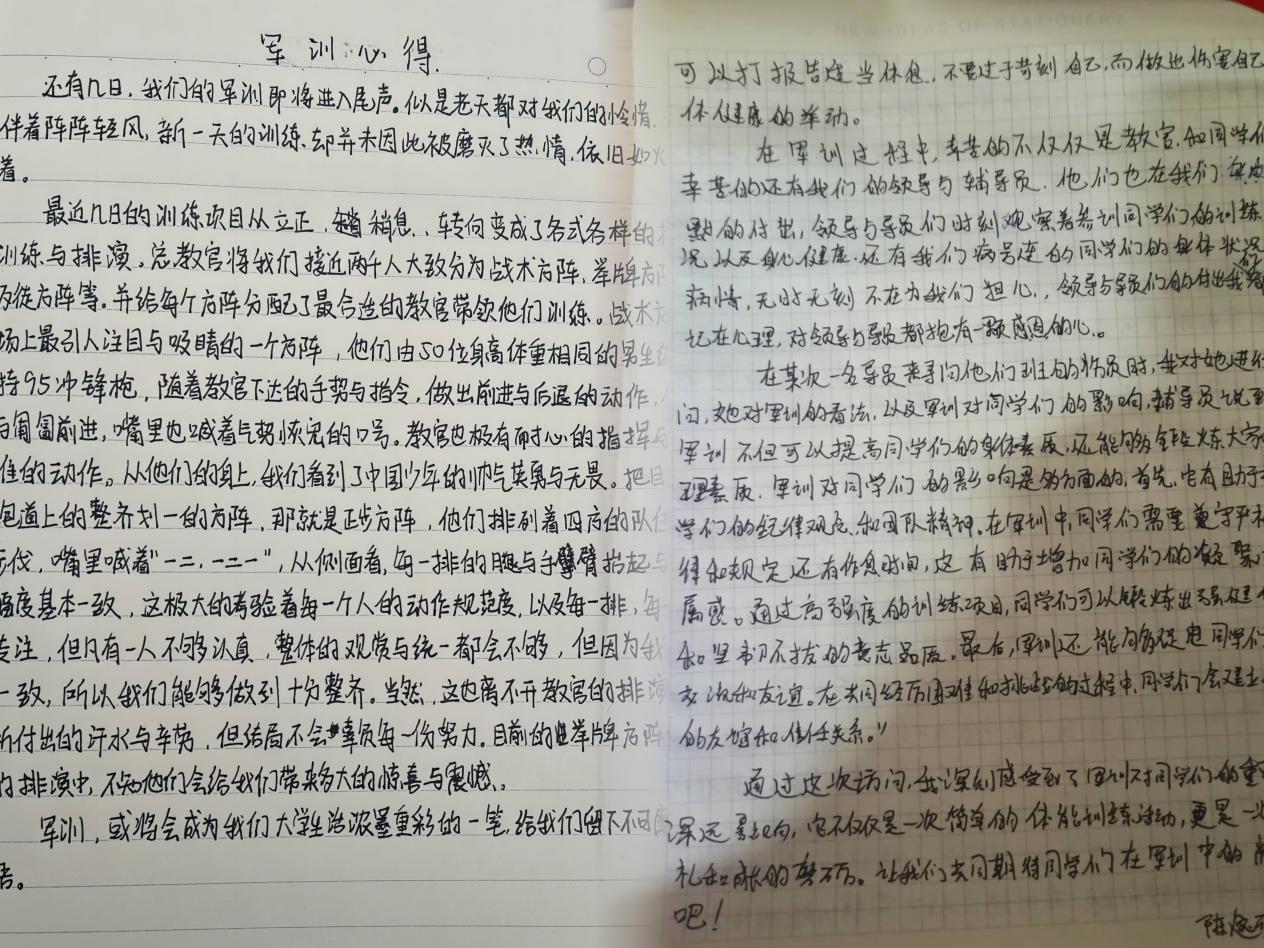 军训心得
还有几日，我们的军训即将进入尾声。似是老天都对我们的怜惜，
伴着阵阵轻风，新一天的训练却并未因此被磨灭了热情，依旧如火
着。
最近几日的训练项目从立正，稍息，转向变成了各式各样的
训练与排演。总教官将我们接近两千人大致分为战术方阵，举牌方阵
方阵等。并给每个方阵分配了最合适的教官带领他们训练。战术方
场上最引人注目与吸睛的一个方阵，他们由50位身高体重相同的男生
持95冲锋枪，随着教官下达的手势与指令，做出前进与后退的动作，
与匍匐前进，嘴里也喊着气势恢宏的口号。教官也极有耐心的指挥与
佳的动作。从他们的身上，我们看到了中国少年的帅气英勇与无畏。把目
跑道上的整齐划一的方阵，那就是正步方阵，他们排列着四方的队伍
步伐，嘴里喊着“一二，一二一”，从侧面看，每一排的腿与手臂抬起与
幅度基本一致，这极大的考验着每一个人的动作规范度，以及每一排，每
专注，但凡有一人不够认真，整体的观赏与统一都会不够，但因为我
一致，所以我们能够做到十分整齐。当然，这也离不开教官的排演
所付出的汗水与辛劳，但结局不会辜负每一份努力。目前的举牌方阵
的排演中，不知他们会给我们带来多大的惊喜与震撼。
军训，或将会成为我们大学生活浓墨重彩的一笔，给我们留下不可
NEW IDEAS OF STATIONERY
可以打报告适当休息，不要过于苛刻自己，而做出伤害自己
体健康的举动。
在军训过程中，辛苦的不仅仅是教官和同学们
辛苦的还有我们的领导与辅导员，他们也在我们
默的付出，领导与导员们时刻观察着参训同学们的训练
况以及身心健康，还有我们病号连的同学们的身体状况
病情，无时无刻不在为我们担心，领导与导员们的付出我都
记在心理，对领导与导员都抱有一颗感恩的心。
在某次一名导员来寻问他们班的伤员时，我对她进行
问，她对军训的看法，以及军训对同学们的影响，辅导员说到
军训不但可以提高同学们的身体素质，还能够锻炼大家
理素质，军训对同学们的影响是多方面的，首先，它有助于
学们的纪律观念和团队精神。在军训中，同学们需要遵守严格
律和规定还有作息时间，这有助于增加同学们的凝聚
属感。通过高强度的训练项目，同学们可以锻炼出强健
和坚韧不拔的意志品质。最后，军训还能够促进同学们
交流和友谊。在共同经历困难和挑战的过程中，同学们会建立
的友谊和信任关系。”
通过这次访问，我深刻感受到了军训对同学们的重
深远影响，它不仅仅是一次简单的体能训练活动，更是一次
礼和成长的磨历。让我们共同期待同学们在军训中的
吧！